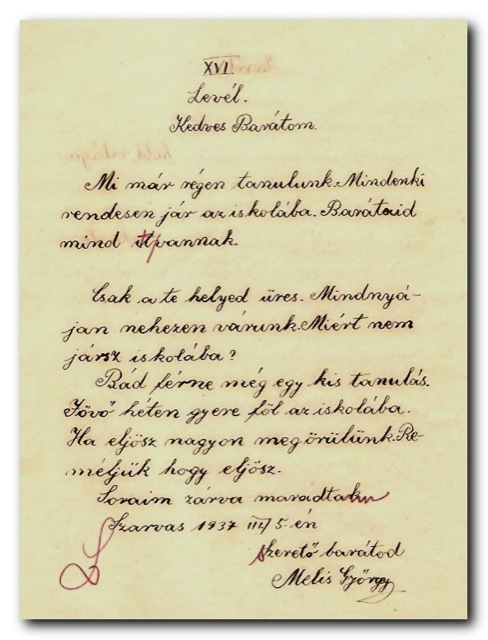 XVI.
Levél.
Kedves Barátom.
Mi már régen tanulunk. Mindenki
rendesen jár az iskolába. Barátaid
mind itt vannak.
Csak a te helyed üres. Mindnyá-
jan nehezen várunk. Miért nem
jársz iskolába?
Rád férne még egy kis tanulás.
Jövő héten gyere föl az iskolába.
Ha eljösz nagyon megörülünk. Re-
méljük hogy eljösz.
Soraim zárva maradtak
Szarvas 1937 III/5-én
Szerető barátod
Melis György